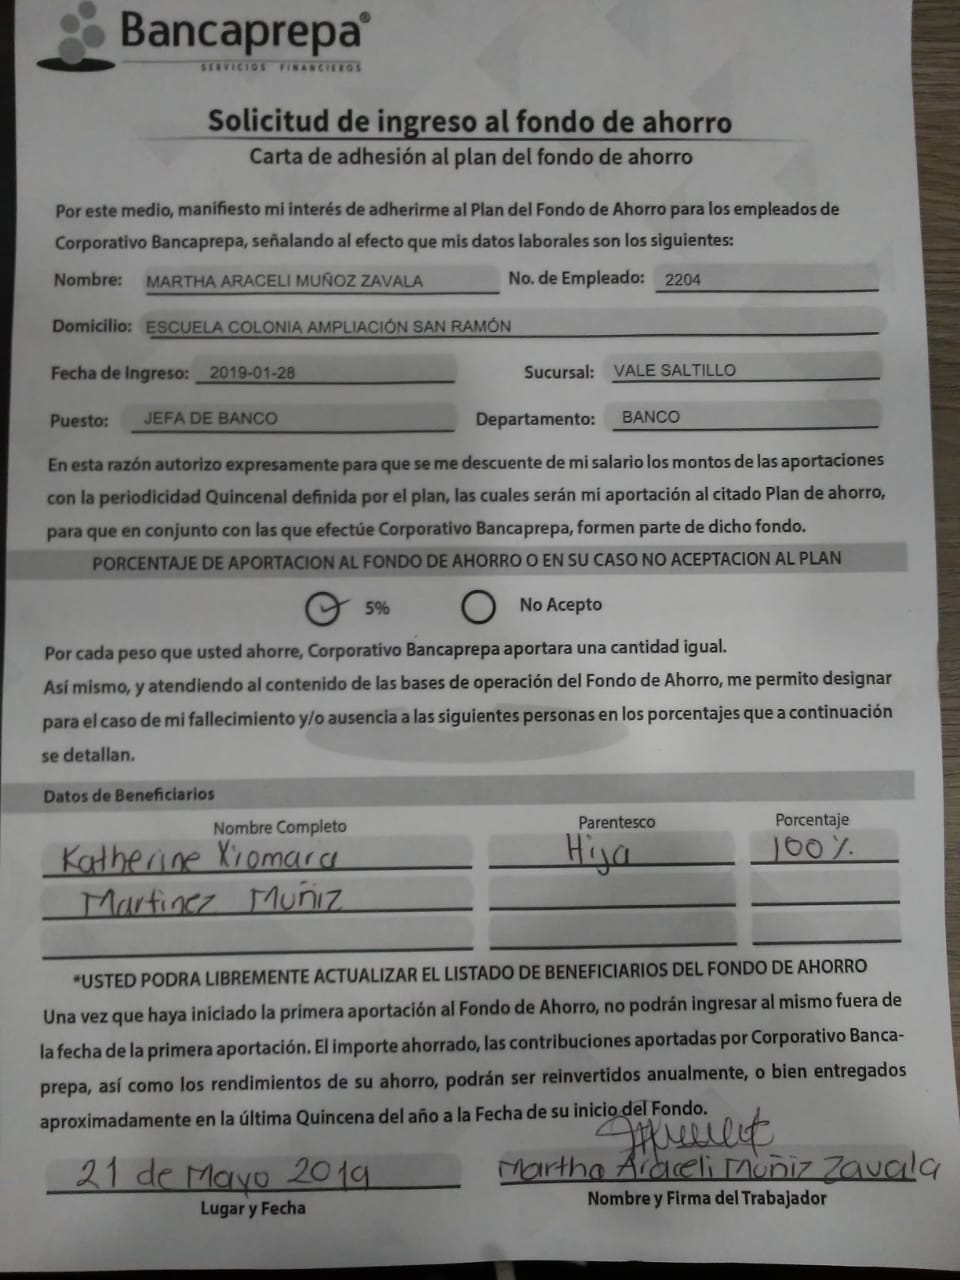 Bancaprepa®
SERVICIOS FINANCIEROS
Solicitud de ingreso al fondo de ahorro
Carta de adhesión al plan del fondo de ahorro
Por este medio, manifiesto mi interés de adherirme al Plan del Fondo de Ahorro para los empleados de
Corporativo Bancaprepa, señalando al efecto que mis datos laborales son los siguientes:
Nombre: MARTHA ARACELI MUÑOZ ZAVALA No. de Empleado: 2204
Domicilio: ESCUELA COLONIA AMPLIACIÓN SAN RAMÓN
Fecha de Ingreso: 2019-01-28 Sucursal: VALE SALTILLO
Puesto: JEFA DE BANCO Departamento: BANCO
En esta razón autorizo expresamente para que se me descuente de mi salario los montos de las aportaciones
con la periodicidad Quincenal definida por el plan, las cuales serán mi aportación al citado Plan de ahorro,
para que en conjunto con las que efectúe Corporativo Bancaprepa, formen parte de dicho fondo.
PORCENTAJE DE APORTACION AL FONDO DE AHORRO O EN SU CASO NO ACEPTACION AL PLAN
5% No Acepto
Por cada peso que usted ahorre, Corporativo Bancaprepa aportara una cantidad igual.
Así mismo, y atendiendo al contenido de las bases de operación del Fondo de Ahorro, me permito designar
para el caso de mi fallecimiento y/o ausencia a las siguientes personas en los porcentajes que a continuación
se detallan.
Datos de Beneficiarios
Nombre Completo Parentesco Porcentaje
Katherine Xiomara Hija 100%
Martinez Muñiz
*USTED PODRA LIBREMENTE ACTUALIZAR EL LISTADO DE BENEFICIARIOS DEL FONDO DE AHORRO
Una vez que haya iniciado la primera aportación al Fondo de Ahorro, no podrán ingresar al mismo fuera de
la fecha de la primera aportación. El importe ahorrado, las contribuciones aportadas por Corporativo Banca-
prepa, así como los rendimientos de su ahorro, podrán ser reinvertidos anualmente, o bien entregados
aproximadamente en la última Quincena del año a la Fecha de su inicio del Fondo.
21 de Mayo 2019 Martha Araceli Muñiz Zavala
Lugar y Fecha Nombre y Firma del Trabajador